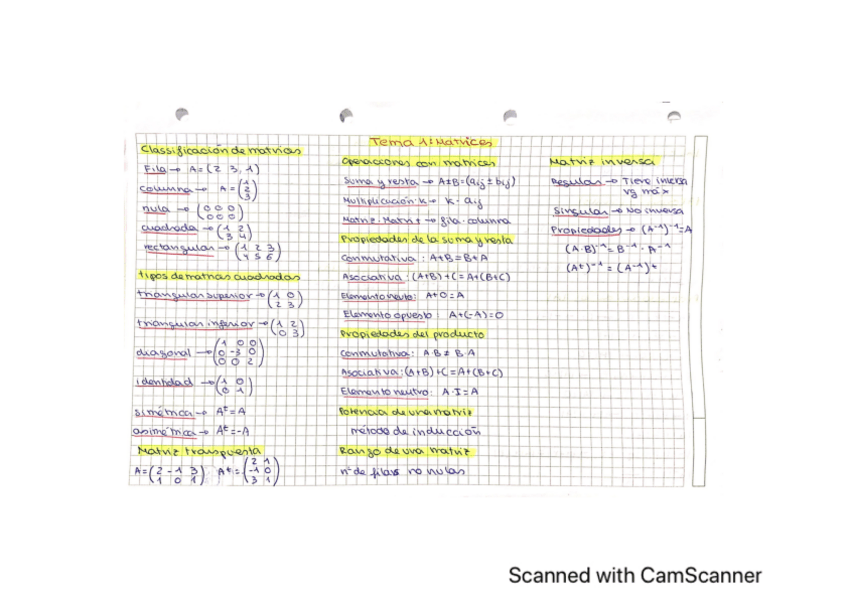 Tema 1: Matrices
Classificación de matrices
Fila → A = (2 3, 1)
columna → A = (1 2 3)
nula → (0 0 0 0 0 0)
cuadrada → (1 2 3 4)
rectangular → (1 2 3 4 5 6)
tipos de matrices cuadradas
triangular superior → (1 0 2 3)
triangular inferior → (1 2 0 3)
diagonal → (1 0 0 0 -3 0 0 0 2)
identidad → (1 0 0 1)
simétrica → Aᵗ = A
asimétrica → Aᵗ = -A
Matriz transpuesta
A = (2 -1 3 1 0 1) Aᵗ = (2 1 -1 0 3 1)
Operaciones con matrices
Suma y resta → A±B = (aij ± bij)
Multiplicación · K → K · aij
Matriz · Matriz → fila · columna
Propiedades de la suma y resta
Conmutativa : A+B = B+A
Asociativa : (A+B)+C = A+(B+C)
Elemento neutro: A+O = A
Elemento opuesto : A+(-A) = O
Propiedades del producto
Conmutativa : A·B ≠ B·A
Asociativa: (A+B)+C = A+(B+C)
Elemento neutro: A·I = A
Potencia de una matriz
método de inducción
Rango de una matriz
nº de filas no nulas
Matriz inversa
Regular → Tiene inversa
rg máx
Singular → No inversa
Propiedades → (A⁻¹)⁻¹ = A
(A·B)⁻¹ = B⁻¹ · A⁻¹
(Aᵗ)⁻¹ = (A⁻¹)ᵗ
Scanned with CamScanner